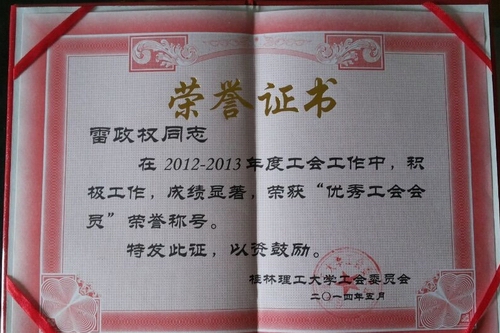 荣誉证书
雷政权同志
在2012-2013年度工会工作中，积
极工作，成绩显著，荣获“优秀工会会
员”荣誉称号。
特发此证，以资鼓励。
桂林理工大学工会委员会
二〇一四年五月